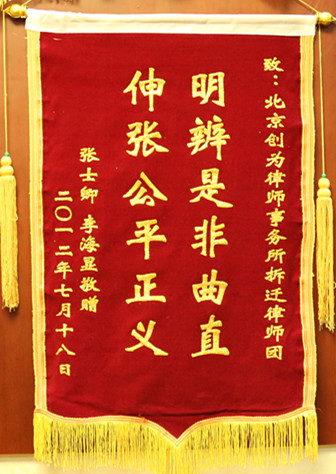 致：北京创为律师事务所拆迁律师团
明辨是非曲直
伸张公平正义
张士卿 李海显敬赠
二〇一二年七月十八日